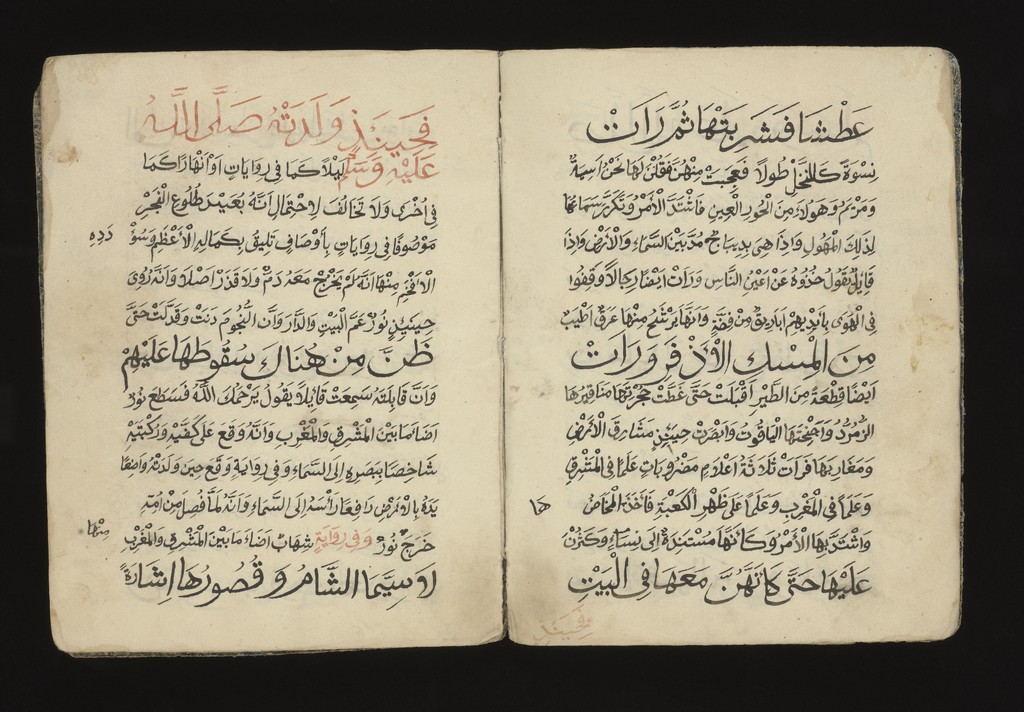 عَطْشَا فَشَرِبَتْهَا ثُمَّ رَاَتْ
نِسْوَةً كَالنَّخْلِ طُولًا فَعَجِبَتْ مِنْهُنَّ فَقُلْنَ لَهَا نَحْنُ اٰسِيَةُ
وَمَرْيَمُ وَهٰوُلَاءِ مِنَ الْحُورِ الْعِينِ فَاشْتَدَّ الْاَمْرُ وَتَكَرَّرَ سَمَاعُهَا
لِذٰلِكَ الْمَهُولِ وَاِذَا هِىَ بِدِيبَاجٍ مُدَّ بَيْنَ السَّمَاءِ وَالْاَرْضِ وَاِذَا
قَايِلٌ يَقُولُ خُذُوهُ عَنْ اَعْيُنِ النَّاسِ وَرَاَتْ اَيْضًا رِجَالًا وَقَفُوا
فِى الْهَوَى بِاَيْدِيهِمْ اَبَارِيقُ مِنْ فِضَّةٍ وَاَنَّهَا يَرْشَحُ مِنْهَا عَرَقٌ اَطْيَبُ
مِنَ الْمِسْكِ الْاَذْفَرِ وَرَاَتْ
اَيْضًا قِطْعَةً مِنَ الطَّيْرِ اَقْبَلَتْ حَتَّى غَطَّتْ حُجْرَتَهَا مَنَاقِيرُهَا
الزُّمُرُّدُ وَاَجْنِحَتُهَا الْيَاقُوتُ وَاَبْصَرَتْ حِينَيِذٍ مَشَارِقَ الْاَرْضِ
وَمَغَارِبَهَا فَرَاَتْ ثَلَاثَةَ اَعْلَامٍ مَضْرُوبَاتٍ عَلَمًا فِى الْمَشْرِقِ
وَعَلَمًا فِى الْمَغْرِبِ وَعَلَمًا عَلَى ظَهْرِ الْكَعْبَةِ فَاَخَذَ الْمَخَاضُ
هَا
وَاشْتَدَّ بِهَا الْاَمْرُ وَكَاَنَّهَا مُسْتَنِدَةٌ اِلَى نِسَاءٍ وَكَثُرْنَ
عَلَيْهَا حَتَّى كَاَنَّهُنَّ مَعَهَا فِى الْبَيْتِ
فَحِينَيِذٍ
فَحِينَيِذٍ وَلَدَتْهُ صَلَّى اللّٰهُ
عَلَيْهِ وَسَلَّمَ لَيْلًا كَمَا فِى رِوَايَاتٍ اَوْ نَهَارًا كَمَا
فِى اُخْرَى وَلَا تَخَالُفَ لِاحْتِمَالِ اَنَّهُ بُعَيْدَ طُلُوعِ الْفَجْرِ
مَوْصُوفًا فِى رِوَايَاتٍ بِاَوْصَافٍ تَلِيقُ بِكَمَالِهِ الْاَعْظَمِ وَسُوْ
دَدِهِ
الْاَفْخَمِ مِنْهَا اَنَّهُ لَمْ يَخْرُجْ مَعَهُ دَمٌ وَلَا قَذَرٌ اَصْلًا وَاَنَّهُ رُوِىَ
حِينَيِذٍ نُورٌ عَمَّ الْبَيْتَ وَالدَّارَ وَاَنَّ النُّجُومَ دَنَتْ وَتَدَلَّتْ حَتَّى
ظَنَّ مَنْ هُنَاكَ سُقُوطَهَا عَلَيْهِمْ
وَاَنَّ قَابِلَتَهُ سَمِعَتْ قَايِلًا يَقُولُ يَرْحَمُكَ اللّٰهُ فَسَطَعَ نُورٌ
اَضَاءَ مَا بَيْنَ الْمَشْرِقِ وَالْمَغْرِبِ وَاَنَّهُ وَقَعَ عَلَى كَفَّيْهِ وَرُكْبَتَيْهِ
شَاخِصًا بِبَصَرِهِ اِلَى السَّمَاءِ وَفِى رِوَايَةٍ وَقَعَ حِينَ وَلَدَتْهُ وَاضِعًا
يَدَهُ بِالْاَرْضِ رَافِعًا رَاْسَهُ اِلَى السَّمَاءِ وَاَنَّهُ لَمَّا فُصِلَ مِنْ اُمِّهِ
مِنْهَا
خَرَجَ نُورٌ وَفِى رِوَايَةٍ شِهَابٌ اَضَاءَ مَا بَيْنَ الْمَشْرِقِ وَالْمَغْرِبِ
لَا سِيَّمَا الشَّامُ وَقُصُورُهَا اِشَارَةً